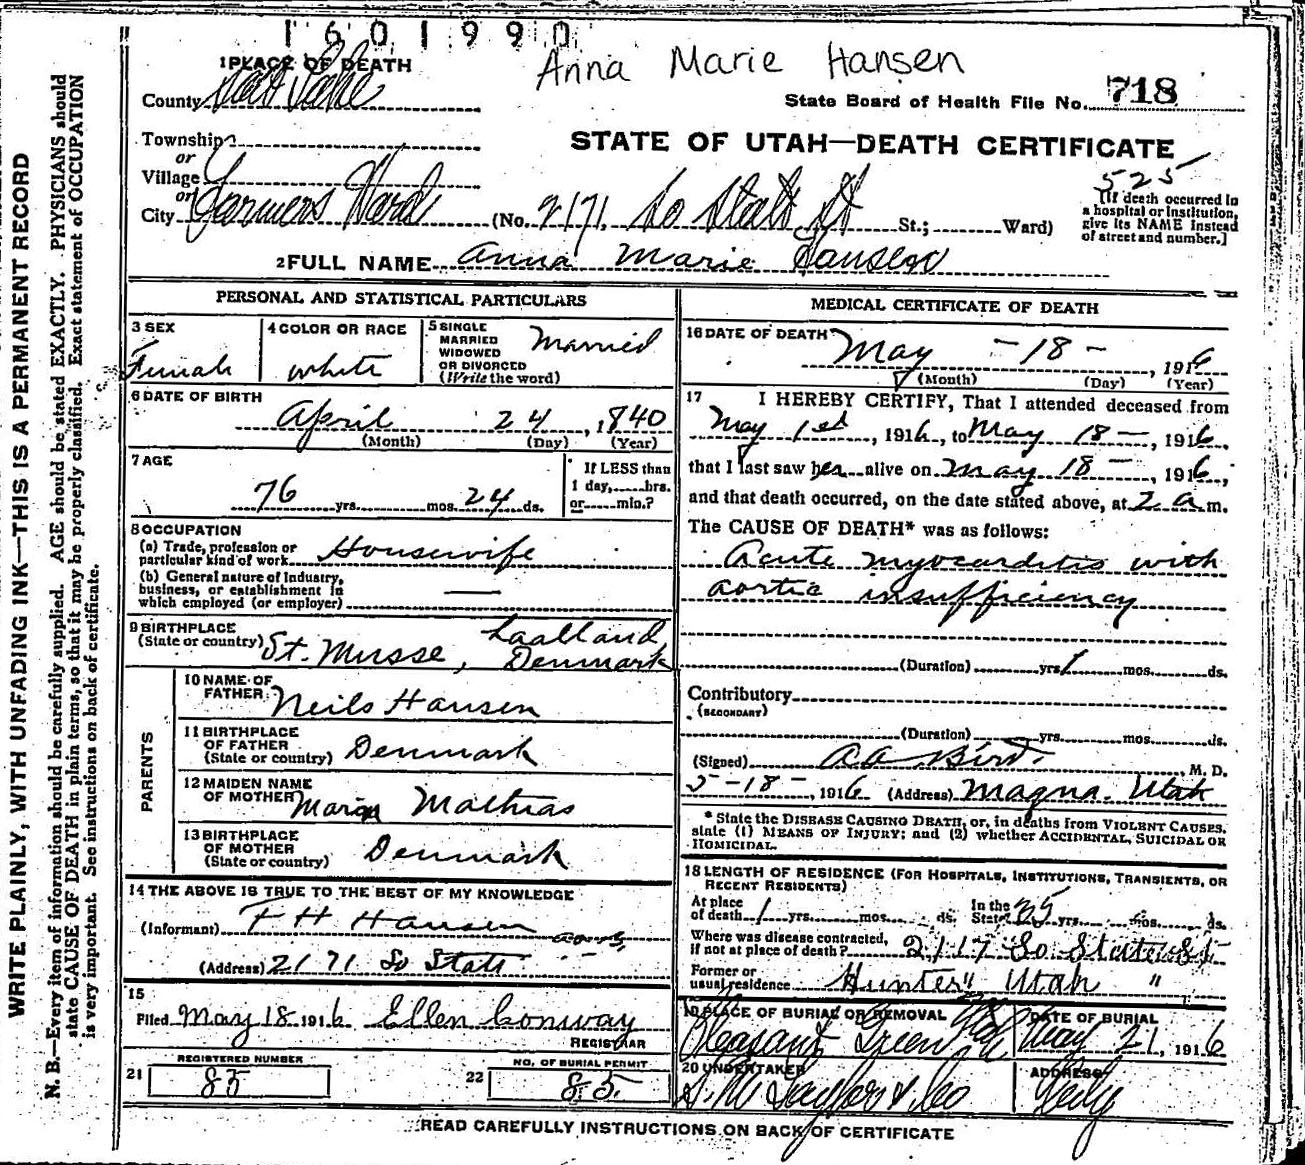 1601990
Anna Marie Hansen
1 PLACE OF DEATH
County Salt Lake
State Board of Health File No. 718
Township
or
Village
or
City Farmers Ward (No. 2171. So State St St.; Ward)
STATE OF UTAH—DEATH CERTIFICATE
525
[If death occurred in
a hospital or institution,
give its NAME instead
of street and number.]
2 FULL NAME Anna Marie Hansen
PERSONAL AND STATISTICAL PARTICULARS
3 SEX
Female
4 COLOR OR RACE
White
5 SINGLE
MARRIED
WIDOWED
OR DIVORCED
(Write the word)
Married
6 DATE OF BIRTH
April 24, 1840
(Month) (Day) (Year)
7 AGE
76 yrs. mos. 24 ds.
If LESS than
1 day, hrs.
or min.?
8 OCCUPATION
(a) Trade, profession or
particular kind of work Housewife
(b) General nature of Industry,
business, or establishment in
which employed (or employer) —
9 BIRTHPLACE
(State or country) St. Musse, Laalland
Denmark
PARENTS
10 NAME OF
FATHER Neils Hansen
11 BIRTHPLACE
OF FATHER
(State or country) Denmark
12 MAIDEN NAME
OF MOTHER Maria Mathias
13 BIRTHPLACE
OF MOTHER
(State or country) Denmark
14 THE ABOVE IS TRUE TO THE BEST OF MY KNOWLEDGE
(Informant) F H Hansen
(Address) 2171 So State
15
Filed May 18 1916 Ellen Conway
REGISTRAR
REGISTERED NUMBER
21 85
NO. OF BURIAL PERMIT
22 85.
MEDICAL CERTIFICATE OF DEATH
16 DATE OF DEATH
May -18-, 1916
(Month) (Day) (Year)
17 I HEREBY CERTIFY, That I attended deceased from
May 1st, 1916, to May 18-, 1916,
that I last saw her alive on May 18-, 1916,
and that death occurred, on the date stated above, at 2 a m.
The CAUSE OF DEATH* was as follows:
Acute myocarditis with
aortic insufficiency
(Duration) yrs. 1 mos. ds.
Contributory
(SECONDARY)
(Duration) yrs. mos. ds.
(Signed) A A Bird. M. D.
5-18-, 1916 (Address) Magna. Utah
* State the DISEASE CAUSING DEATH, or, in deaths from VIOLENT CAUSES,
state (1) MEANS OF INJURY; and (2) whether ACCIDENTAL, SUICIDAL OR
HOMICIDAL.
18 LENGTH OF RESIDENCE (FOR HOSPITALS, INSTITUTIONS, TRANSIENTS, OR
RECENT RESIDENTS)
At place
of death 1 yrs. mos. ds.
In the
State 35 yrs. mos. ds.
Where was disease contracted,
if not at place of death? 2117 So State St
Former or
usual residence Hunter" Utah "
19 PLACE OF BURIAL OR REMOVAL
Pleasant Green
DATE OF BURIAL
May 21, 1916
20 UNDERTAKER
S. M. Taylor & Co
ADDRESS
City
READ CAREFULLY INSTRUCTIONS ON BACK OF CERTIFICATE
WRITE PLAINLY, WITH UNFADING INK—THIS IS A PERMANENT RECORD
N. B.—Every item of information should be carefully supplied. AGE should be stated EXACTLY. PHYSICIANS should
state CAUSE OF DEATH in plain terms, so that it may be properly classified. Exact statement of OCCUPATION
is very important. See instructions on back of certificate.